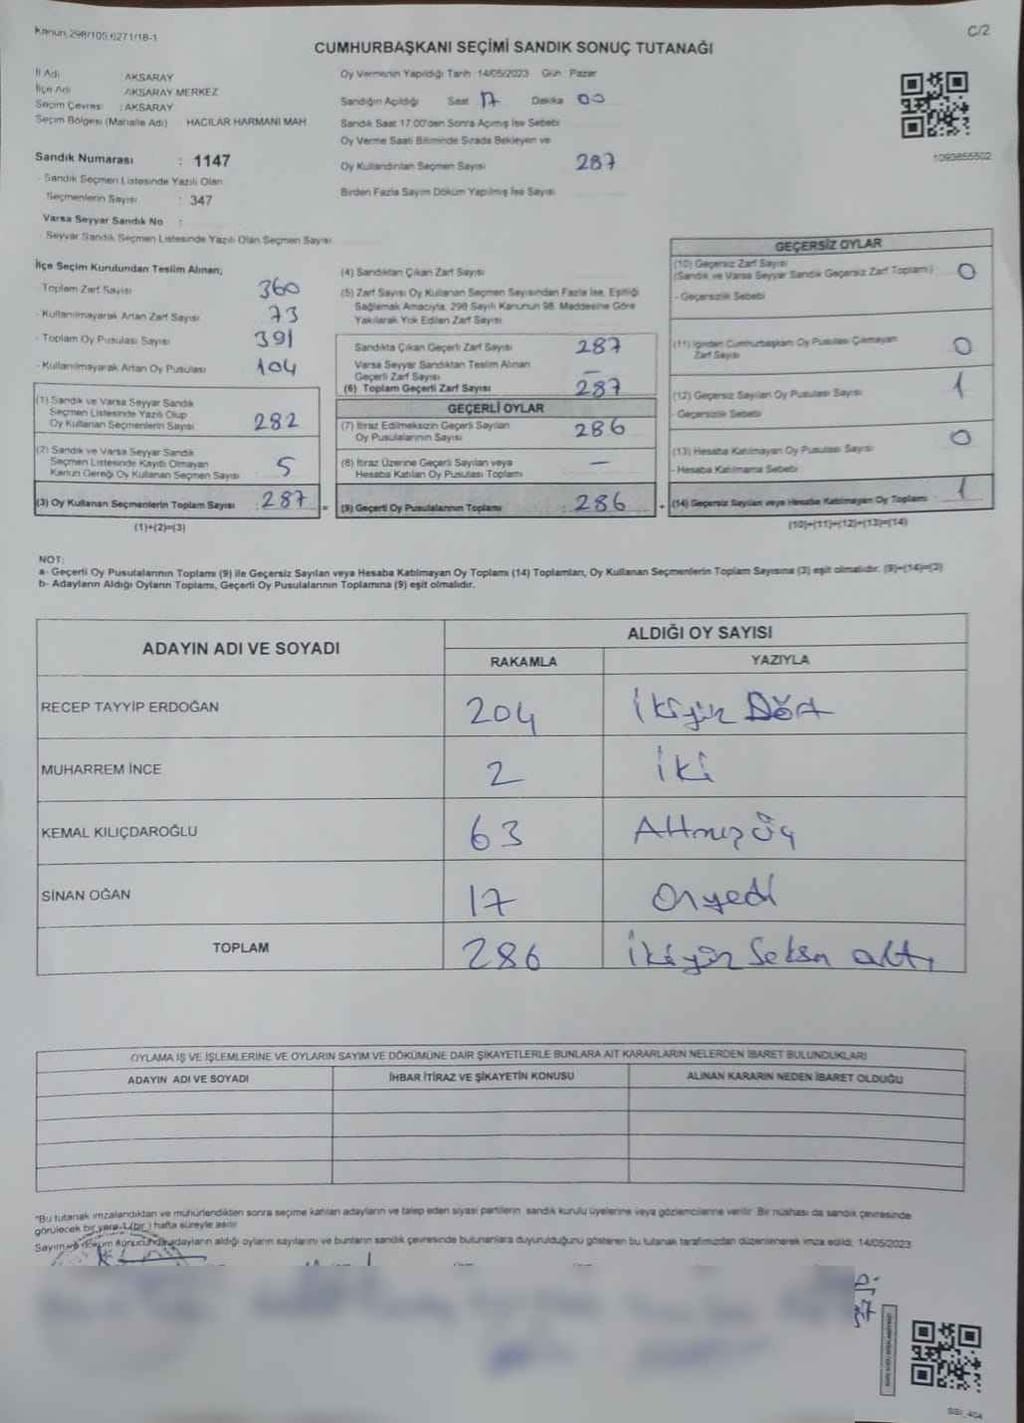 Kanun 298/105 6271/18-1
C/2
CUMHURBAŞKANI SEÇİMİ SANDIK SONUÇ TUTANAĞI
İl Adı AKSARAY
İlçe Adı AKSARAY MERKEZ
Seçim Çevresi : AKSARAY
Seçim Bölgesi (Mahalle Adı) HACILAR HARMANI MAH.
Sandık Numarası : 1147
- Sandık Seçmen Listesinde Yazılı Olan
Seçmenlerin Sayısı : 347
Varsa Seyyar Sandık No :
- Seyyar Sandık Seçmen Listesinde Yazılı Olan Seçmen Sayısı
Oy Vermenin Yapıldığı Tarih 14/05/2023 Gün Pazar
Sandığın Açıldığı Saat 17 Dakika 00
Sandık Saat 17.00'den Sonra Açılmış İse Sebebi
Oy Verme Saati Bitiminde Sırada Bekleyen ve
Oy Kullandırılan Seçmen Sayısı 287
Birden Fazla Sayım Döküm Yapılmış İse Sayısı
1093855502
İlçe Seçim Kurulundan Teslim Alınan;
Toplam Zarf Sayısı 360
- Kullanılmayarak Artan Zarf Sayısı 73
- Toplam Oy Pusulası Sayısı 391
- Kullanılmayarak Artan Oy Pusulası 104
(1) Sandık ve Varsa Seyyar Sandık
Seçmen Listesinde Yazılı Olup
Oy Kullanan Seçmenlerin Sayısı 282
(2) Sandık ve Varsa Seyyar Sandık
Seçmen Listesinde Kayıtlı Olmayan
Kanun Gereği Oy Kullanan Seçmen Sayısı 5
(3) Oy Kullanan Seçmenlerin Toplam Sayısı : 287 =
(1)+(2)=(3)
(4) Sandıktan Çıkan Zarf Sayısı
(5) Zarf Sayısı Oy Kullanan Seçmen Sayısından Fazla İse, Eşitliği
Sağlamak Amacıyla, 298 Sayılı Kanunun 98. Maddesine Göre
Yakılarak Yok Edilen Zarf Sayısı
Sandıkta Çıkan Geçerli Zarf Sayısı 287
Varsa Seyyar Sandıktan Teslim Alınan
Geçerli Zarf Sayısı —
(6) Toplam Geçerli Zarf Sayısı 287
GEÇERLİ OYLAR
(7) İtiraz Edilmeksizin Geçerli Sayılan
Oy Pusulalarının Sayısı 286
(8) İtiraz Üzerine Geçerli Sayılan veya
Hesaba Katılan Oy Pusulası Toplamı —
(9) Geçerli Oy Pusulalarının Toplamı : 286
GEÇERSİZ OYLAR
(10) Geçersiz Zarf Sayısı
(Sandık ve Varsa Seyyar Sandık Geçersiz Zarf Toplamı) 0
- Geçersizlik Sebebi
(11) İçinden Cumhurbaşkanı Oy Pusulası Çıkmayan
Zarf Sayısı 0
(12) Geçersiz Sayılan Oy Pusulası Sayısı 1
- Geçersizlik Sebebi
(13) Hesaba Katılmayan Oy Pusulası Sayısı 0
- Hesaba Katılmama Sebebi
+ (14) Geçersiz Sayılan veya Hesaba Katılmayan Oy Toplamı 1
(10)+(11)+(12)+(13)=(14)
NOT:
a- Geçerli Oy Pusulalarının Toplamı (9) ile Geçersiz Sayılan veya Hesaba Katılmayan Oy Toplamı (14) Toplamları, Oy Kullanan Seçmenlerin Toplam Sayısına (3) eşit olmalıdır. (9)+(14)=(3)
b- Adayların Aldığı Oyların Toplamı, Geçerli Oy Pusulalarının Toplamına (9) eşit olmalıdır.
ADAYIN ADI VE SOYADI
ALDIĞI OY SAYISI
RAKAMLA YAZIYLA
RECEP TAYYİP ERDOĞAN 204 İkiyüz Dört
MUHARREM İNCE 2 iki
KEMAL KILIÇDAROĞLU 63 Altmış üç
SİNAN OĞAN 17 Onyedi
TOPLAM 286 ikiyüz Seksen altı
OYLAMA İŞ VE İŞLEMLERİNE VE OYLARIN SAYIM VE DÖKÜMÜNE DAİR ŞİKAYETLERLE BUNLARA AİT KARARLARIN NELERDEN İBARET BULUNDUKLARI
ADAYIN ADI VE SOYADI İHBAR İTİRAZ VE ŞİKAYETİN KONUSU ALINAN KARARIN NEDEN İBARET OLDUĞU
*Bu tutanak imzalandıktan ve mühürlendikten sonra seçime katılan adayların ve talep eden siyasi partilerin, sandık kurulu üyelerine veya gözlemcilerine verilir. Bir nüshası da sandık çevresinde
görülecek bir yere 1 (bir) hafta süreyle asılır.
Sayım ve döküm sonucunda adayların aldığı oyların sayılarını ve bunların sandık çevresinde bulunanlara duyurulduğunu gösteren bu tutanak tarafımızdan düzenlenerek imza edildi. 14/05/2023